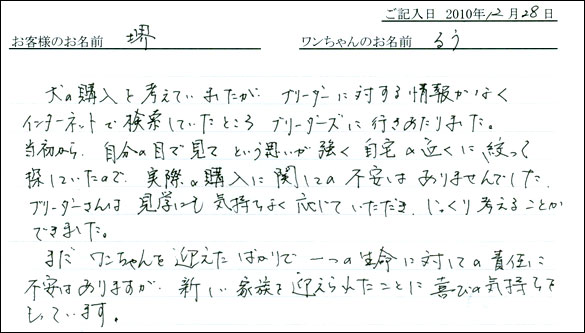 ご記入日 2010年12月28日
お客様のお名前 堺 ワンちゃんのお名前 るう
犬の購入を考えていましたが、ブリーダーに対する情報がなく
インターネットで検索していたところ ブリーダーズに行きあたりました。
当初から、自分の目で見て という思いが強く 自宅の近くに絞って
探していたので、実際の購入に関しての不安はありませんでした。
ブリーダーさんは 見学にも気持ちよく応じていただき、じっくり考えることが
できました。
まだ ワンちゃんを迎えたばかりで 一つの生命に対しての責任に
不安はありますが、新しい家族を迎えられたことに喜びの気持ちで
しています。